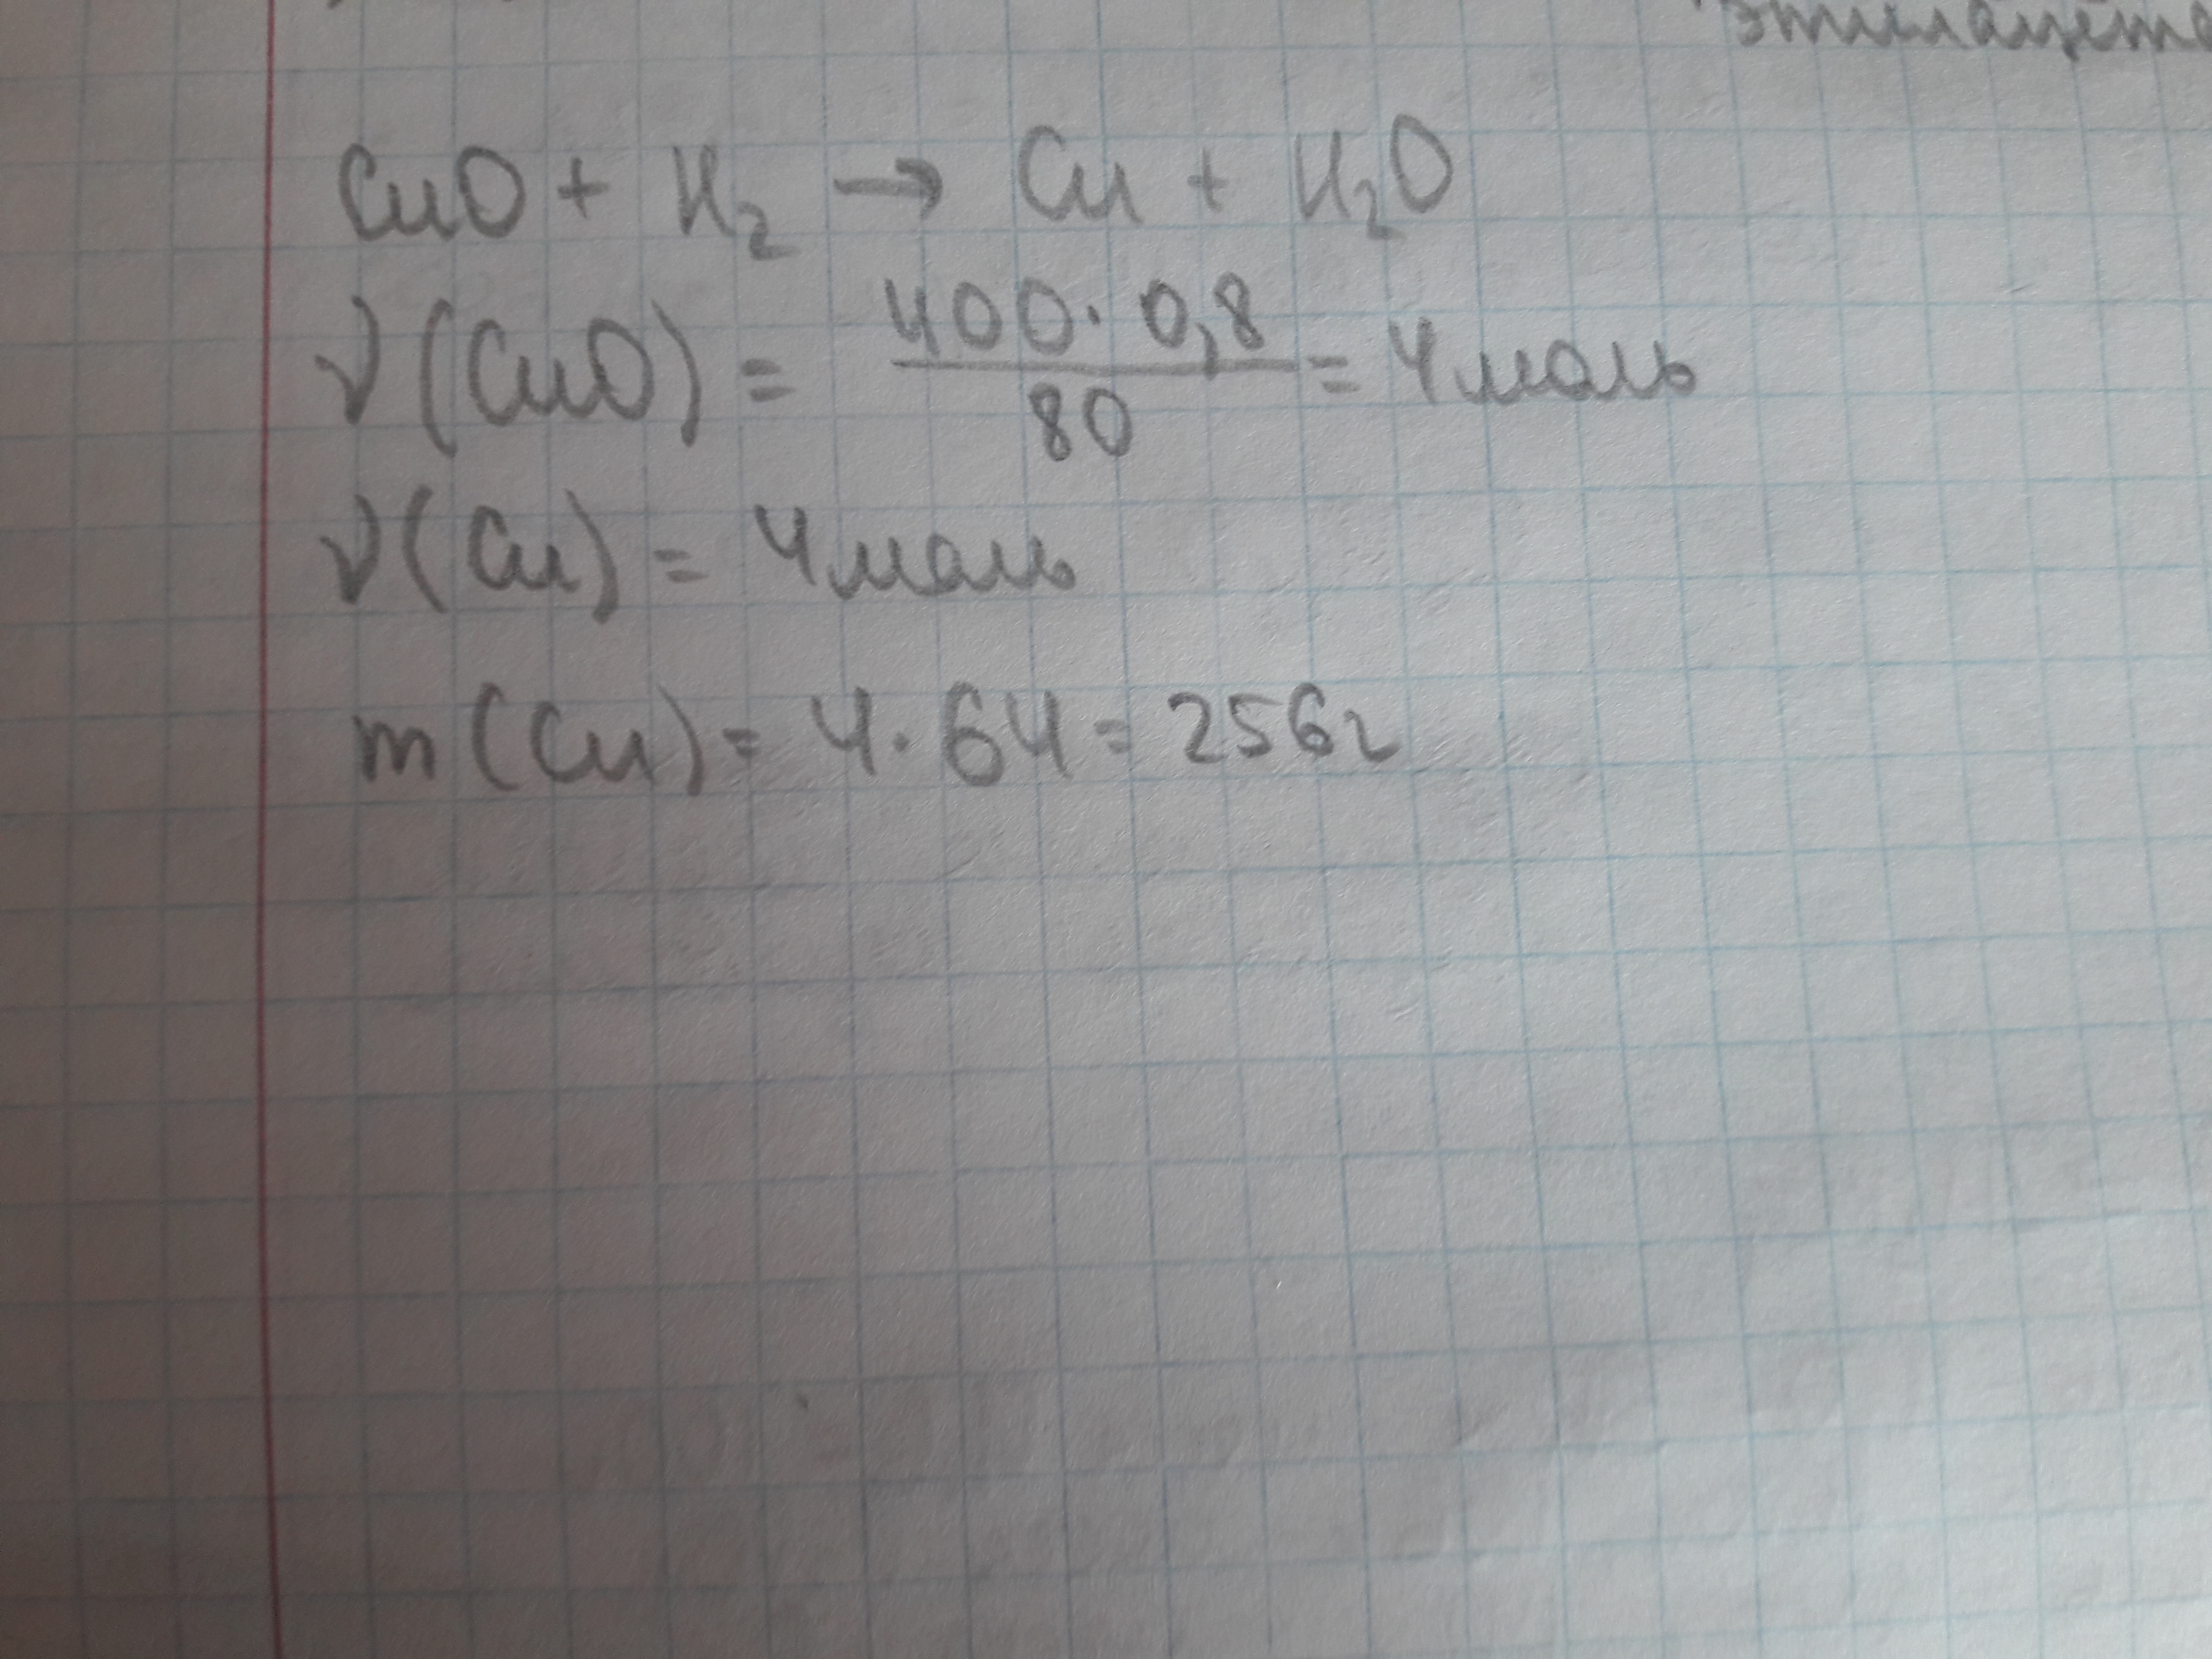 CuO + H₂ → Cu + H₂O
ν(CuO) = 400·0,8/80 = 4моль
ν(Cu) = 4моль
m(Cu) = 4·64 = 256г